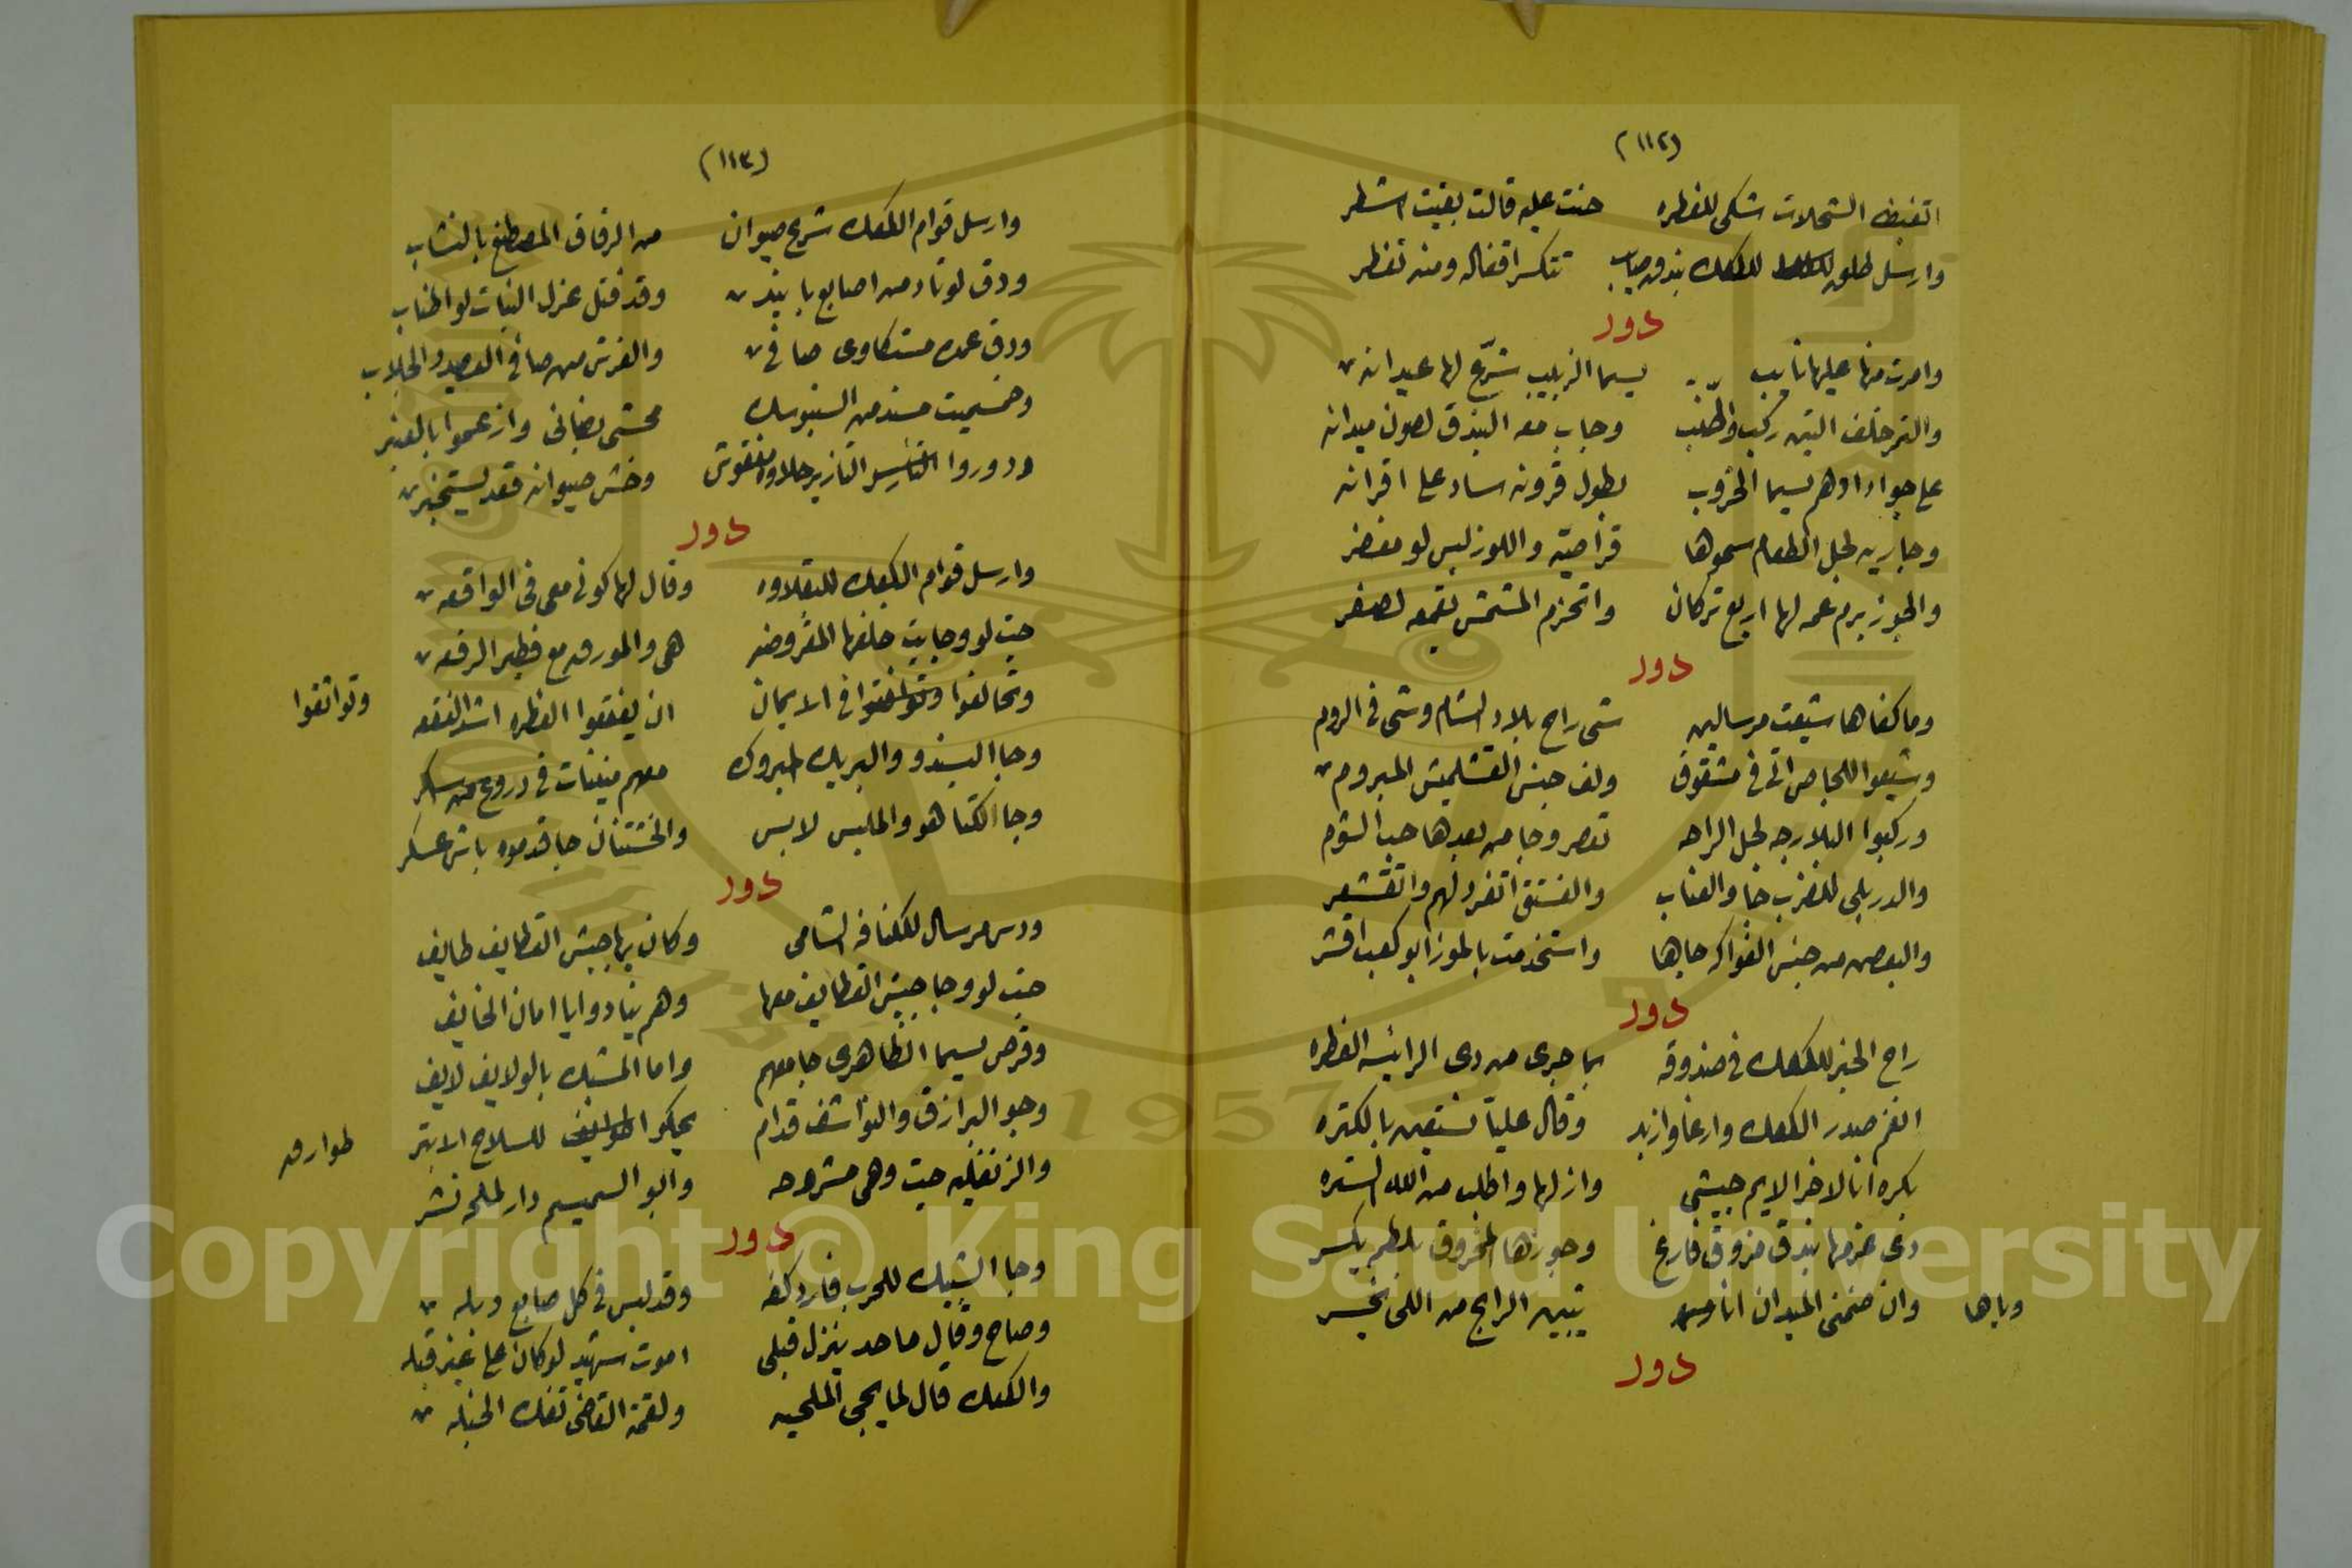 (١١٢)
اتغبظ الشحلات شكى للفطره حنت عليه قالت بقيت اشطر
وارسل طلوبه للكعك بندق صايب تتكسر اقفاله ومنه تفطر
دور
وامرت منها عليها نايب بسيما الزبيب شرّع لها عيدانه
والتمر خلف التين ركب واطلب وجاب معه البندق لصون ميدانه
على جواد ادهم بسيما الخروب بطول قرونه ساد على اقرانه
وجابريه لجل الطعام سموها قراصيّه واللوز لبس لو مغفر
والجوز برم عمه لها اربع تركان واتحزم المشمش بقمعه لصفر
دور
وما كفاها شيعت مرسالين شى راح بلاد الشام وشى فى الروم
وشيعوا اللجاص اتى فى مشقوق ولف جنس القشلميش المبروم
وركبوا البلارجه لجل الراحه تعصر وجا من بعدها حب الشوم
والدربلى للضرب جا والعناب والفستق اتفرد لهم واتقشعر
والبعض من جنس الفواكه جابها واستخدمت بالموز ابو كعب اقشر
دور
راح الخبر للكعك فى صندوقه بما جرى من دى الرايسه الفطره
انغم صدر الكعك وارغا وازبد وقال عليا تستعين بالكتره
بكره انا لاخر الايم جيشى وانزلها واطلب من الله الستره
دى عزمها بندق مزوق فارغ وجوزها المخروق بلطم يكسر
وان ضمنى الميدان انا وباها يتبين الرابح من اللى يخسر
وباها
دور
(١١٣)
وارسل قوام الكعك شرع صيوان من الرقاق المصطنع بالنشاب
ودق لوتاد من اصابع بانيد وقد فتل غزل البنات لو اطناب
ودق عمده مستكاوى صافى والفرش من صافى العصيد والجلاب
وخسميت مسند من السنبوسك محشى بضانى وازعموا بالعنبر
ودوروا التازير حلاوه منفوش وخش صيوانه قعد يستخبر
دور
وارسل قوام الكعك للبقلاوه وقال لها كونى معى فى الواقعه
جت لو وجابت خلفها المفروضه هى والمورقه مع فطير الرقعه
وتحالفوا وتواثقوا فى الايمان ان يفقعوا الفطره اشد الفقعه
وتواثقوا
وجا البسندو والبريك المبروك معهم منينات فى دروع من سكر
وجا الكتاهو والملبس لابس والخشتنان جا قدموه باش عسكر
دور
ودس مرسال للكنافه الشامى وكان يرا جيش القطايف طايف
جت لو وجا جيش القطايف معها وهم ينادوا يا امان الخايف
وقرص بسيما الظاهرى جا معهم واما المشبك بالولايف لايف
وجو البرازق والنواشف قدام يحكوا للسلاح الابتر
طوارقه
والزنفليه جت وهى مشروحه وابو السميسم دار لملحه نشر
دور
وجا الشبيك للحرب فارد كفه وقد لبس فى كل صابع دبله
وصاح وقال ما حد ينزل قبلى اموت شهيد لو كان على غير قبله
والكعك قال لما يجى الملحيه ولقمة القاضى تفك الحبله